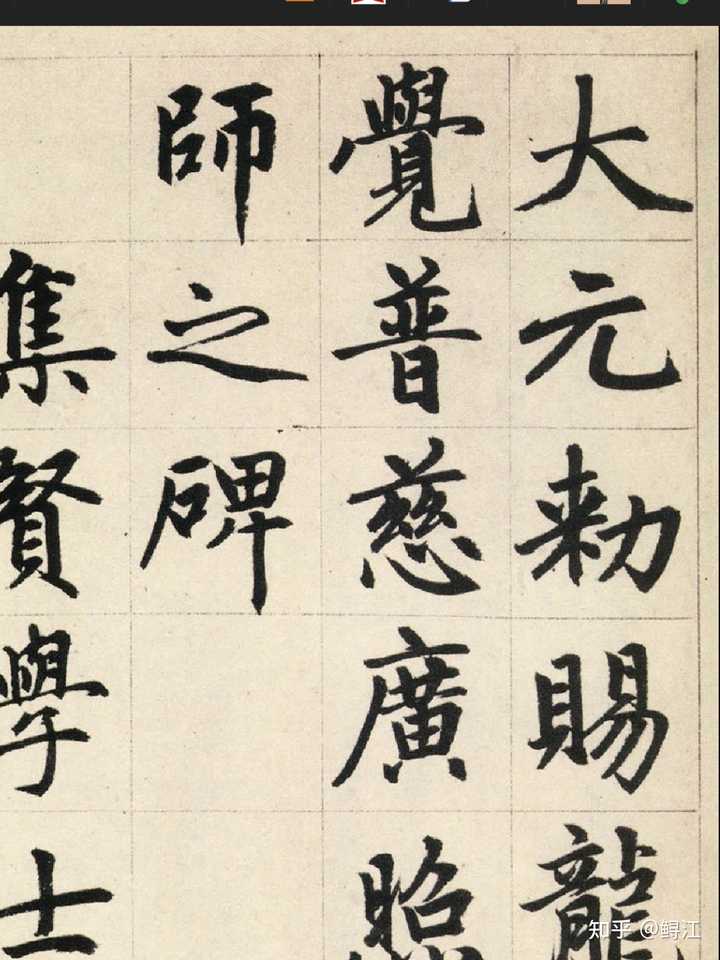 大元勑賜龍
覺普慈廣照
師之碑
集賢學士
知乎 @鲟江